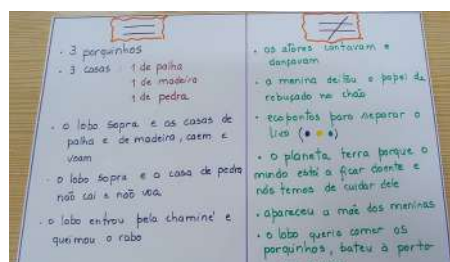 • 3 porquinhos
• 3 casas 1 de palha
1 de madeira
1 de pedra
• o lobo sopra e as casas de
palha e de madeira, caem e
voam
• o lobo sopra e a casa de pedra
não cai e não voa
• o lobo entrou pela chaminé e
queimou o rabo
• os atores cantavam e
dançavam
• a menina deitou o papel de
rebuçado no chão
• ecopontos para separar o
lixo ( )
• o planeta terra porque o
mundo está a ficar doente e
nós temos de cuidar dele
• apareceu a mãe das meninas
• o lobo queria comer os
porquinhos, bateu à porta